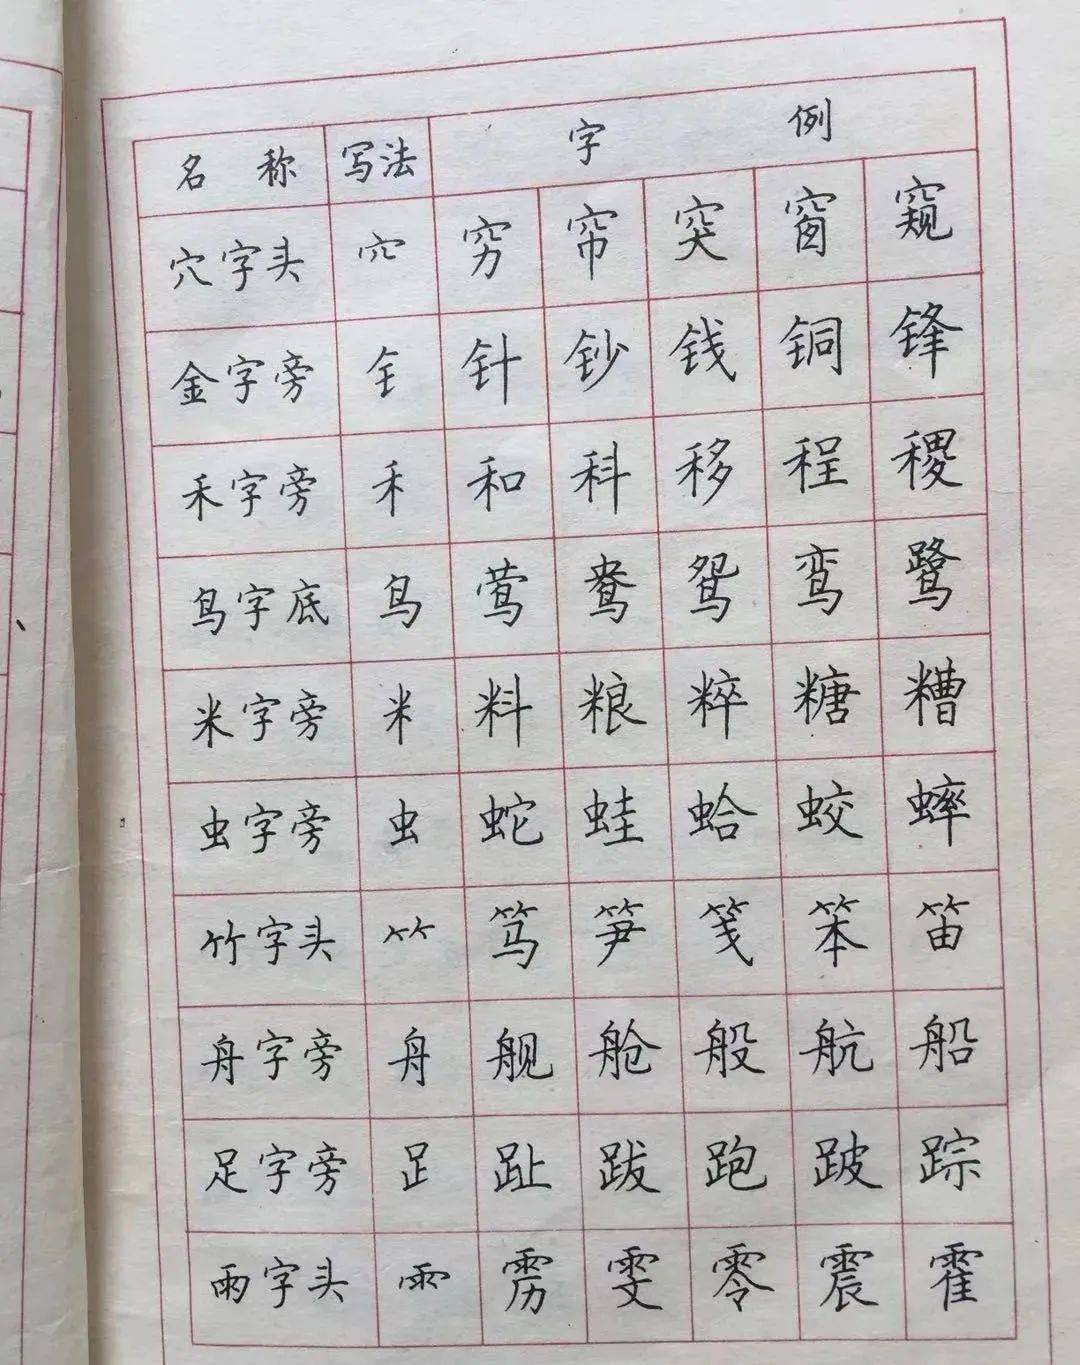 名称 写法 字例
穴字头 穴 穷 帘 突 窗 窥
金字旁 钅 针 钞 钱 铜 锋
禾字旁 禾 和 科 移 程 稷
鸟字底 鸟 莺 鸯 鸳 鸾 鹭
米字旁 米 料 粮 粹 糖 糟
虫字旁 虫 蛇 蛙 蛤 蛟 蟀
竹字头 ⺮ 笃 笋 笺 笨 笛
舟字旁 舟 舰 舱 般 航 船
足字旁 𧾷 趾 跋 跑 跛 踪
雨字头 ⻗ 雳 雯 零 震 霍